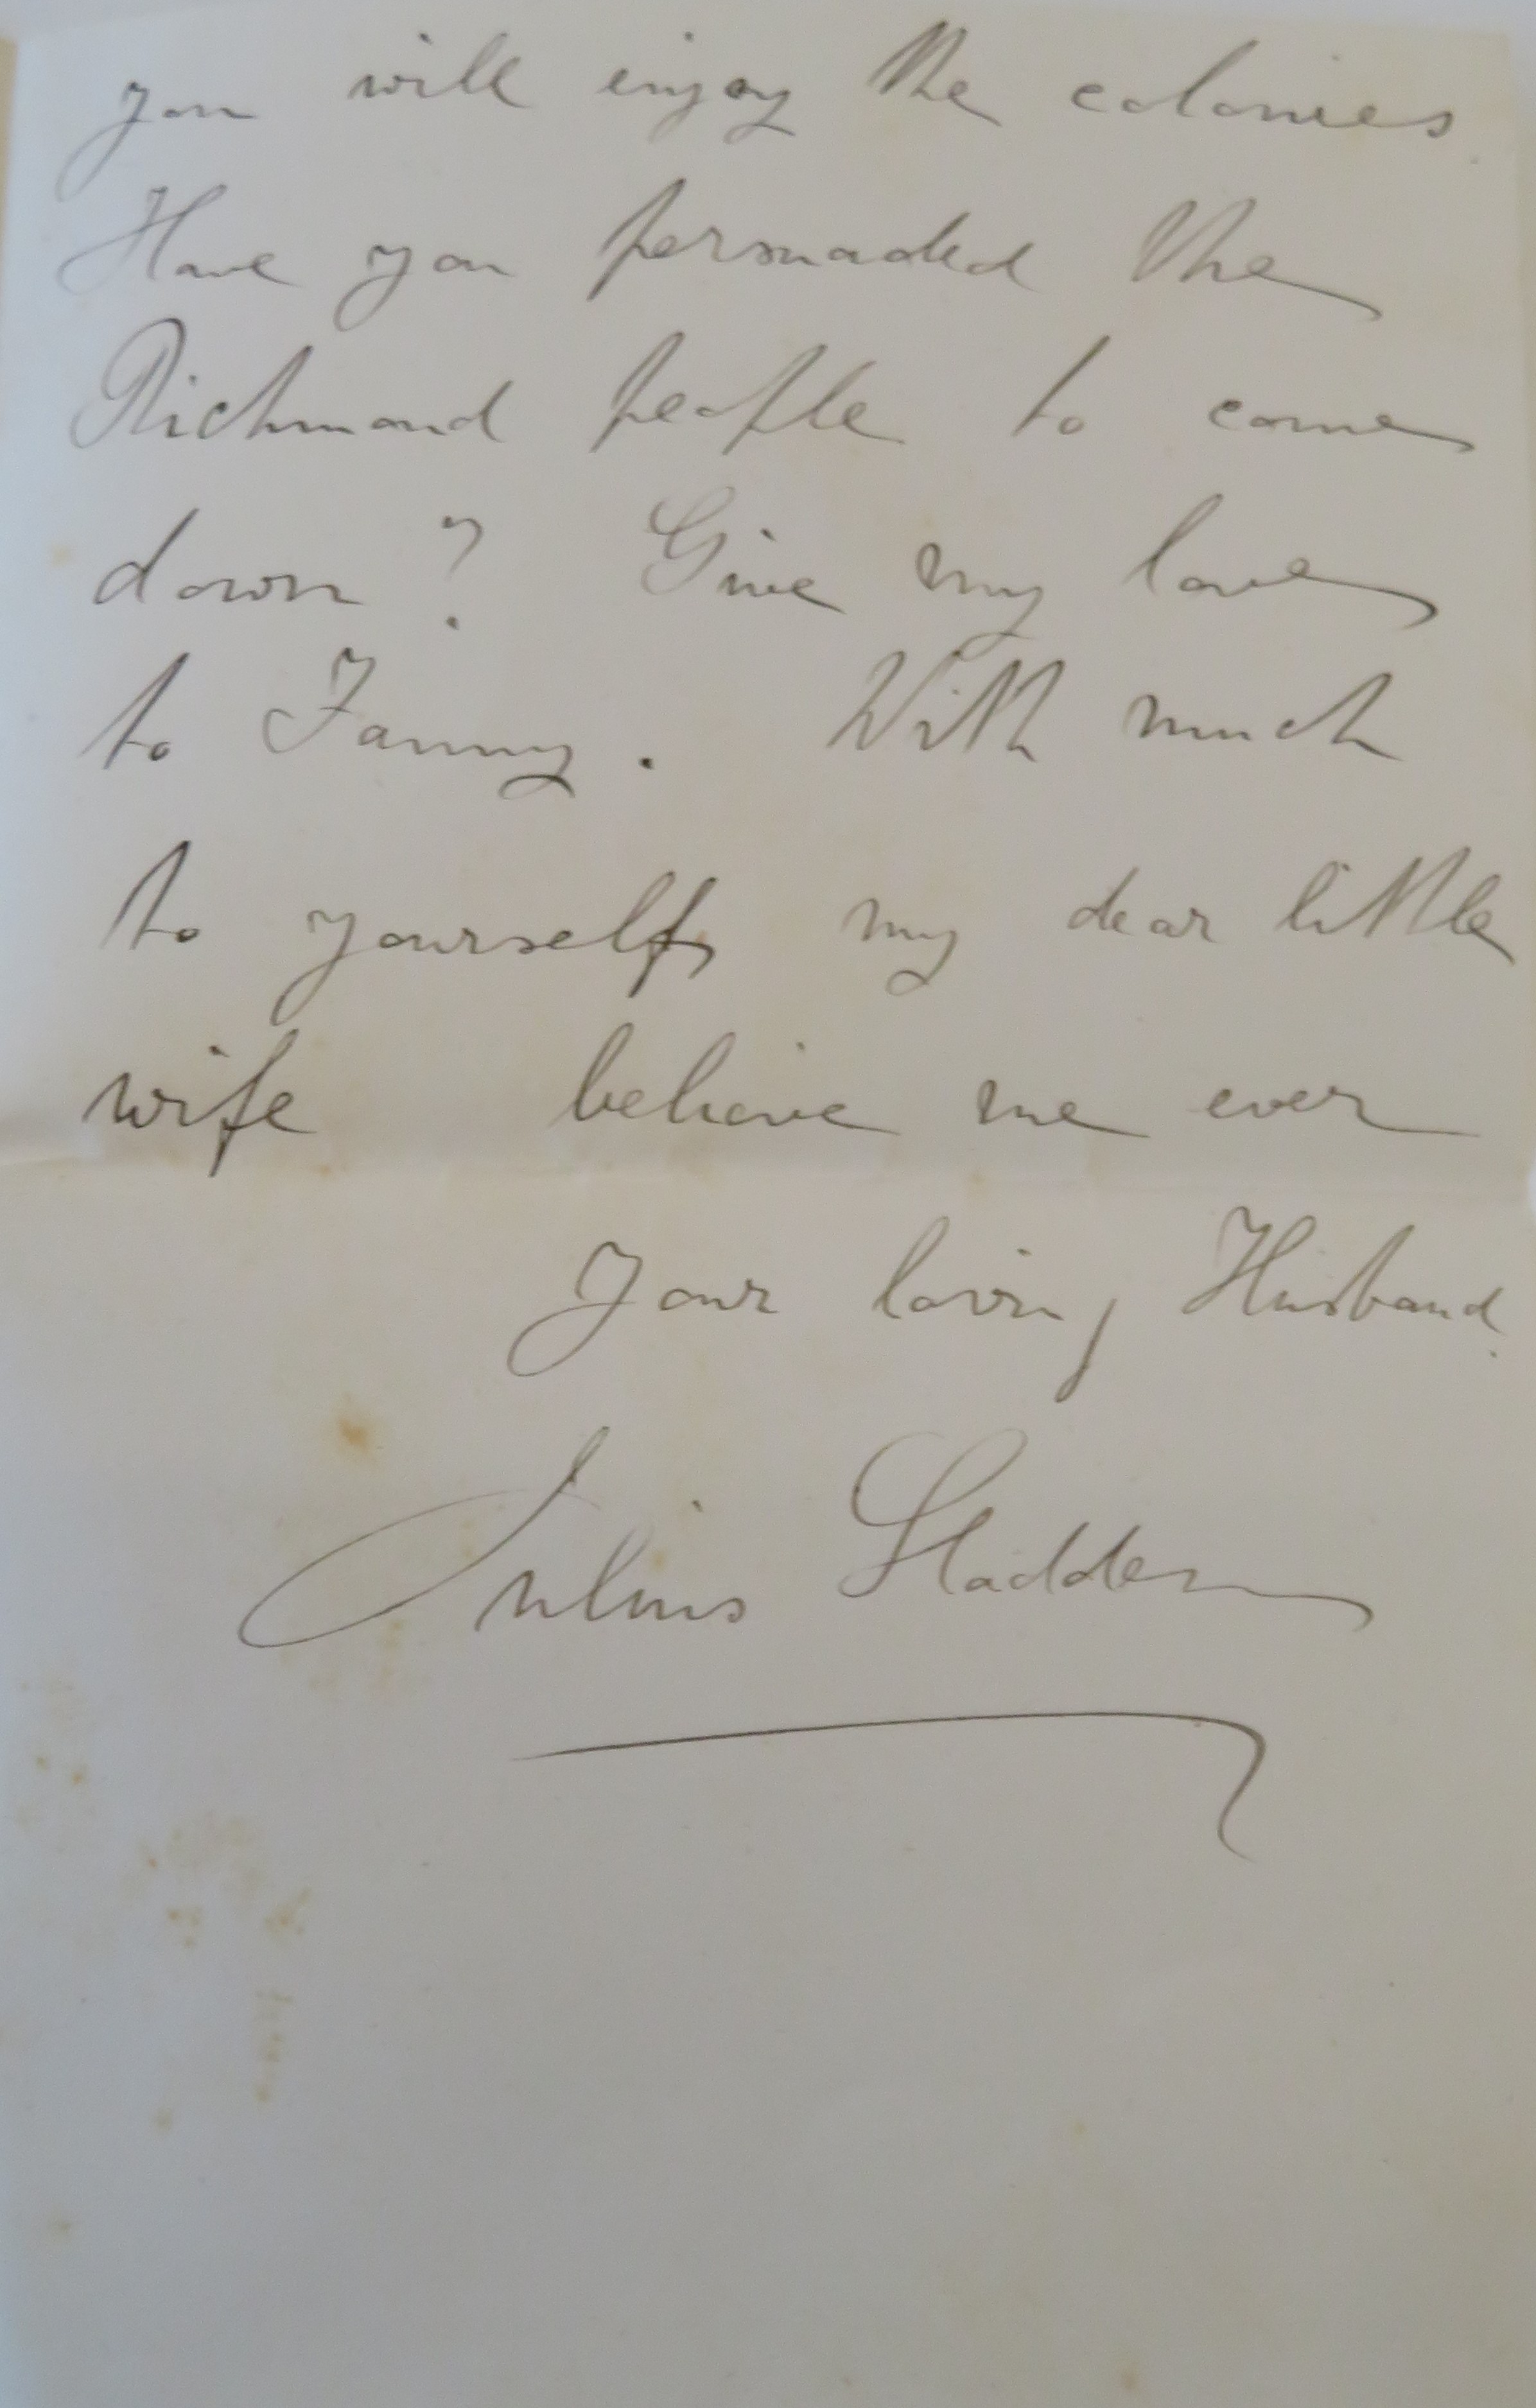 you will enjoy the colonies.
Have you persuaded the
Richmond people to come
down? Give my love
to Fanny. With much
to yourself my dear little
wife believe me ever
Your loving Husband.
Julius Sladden